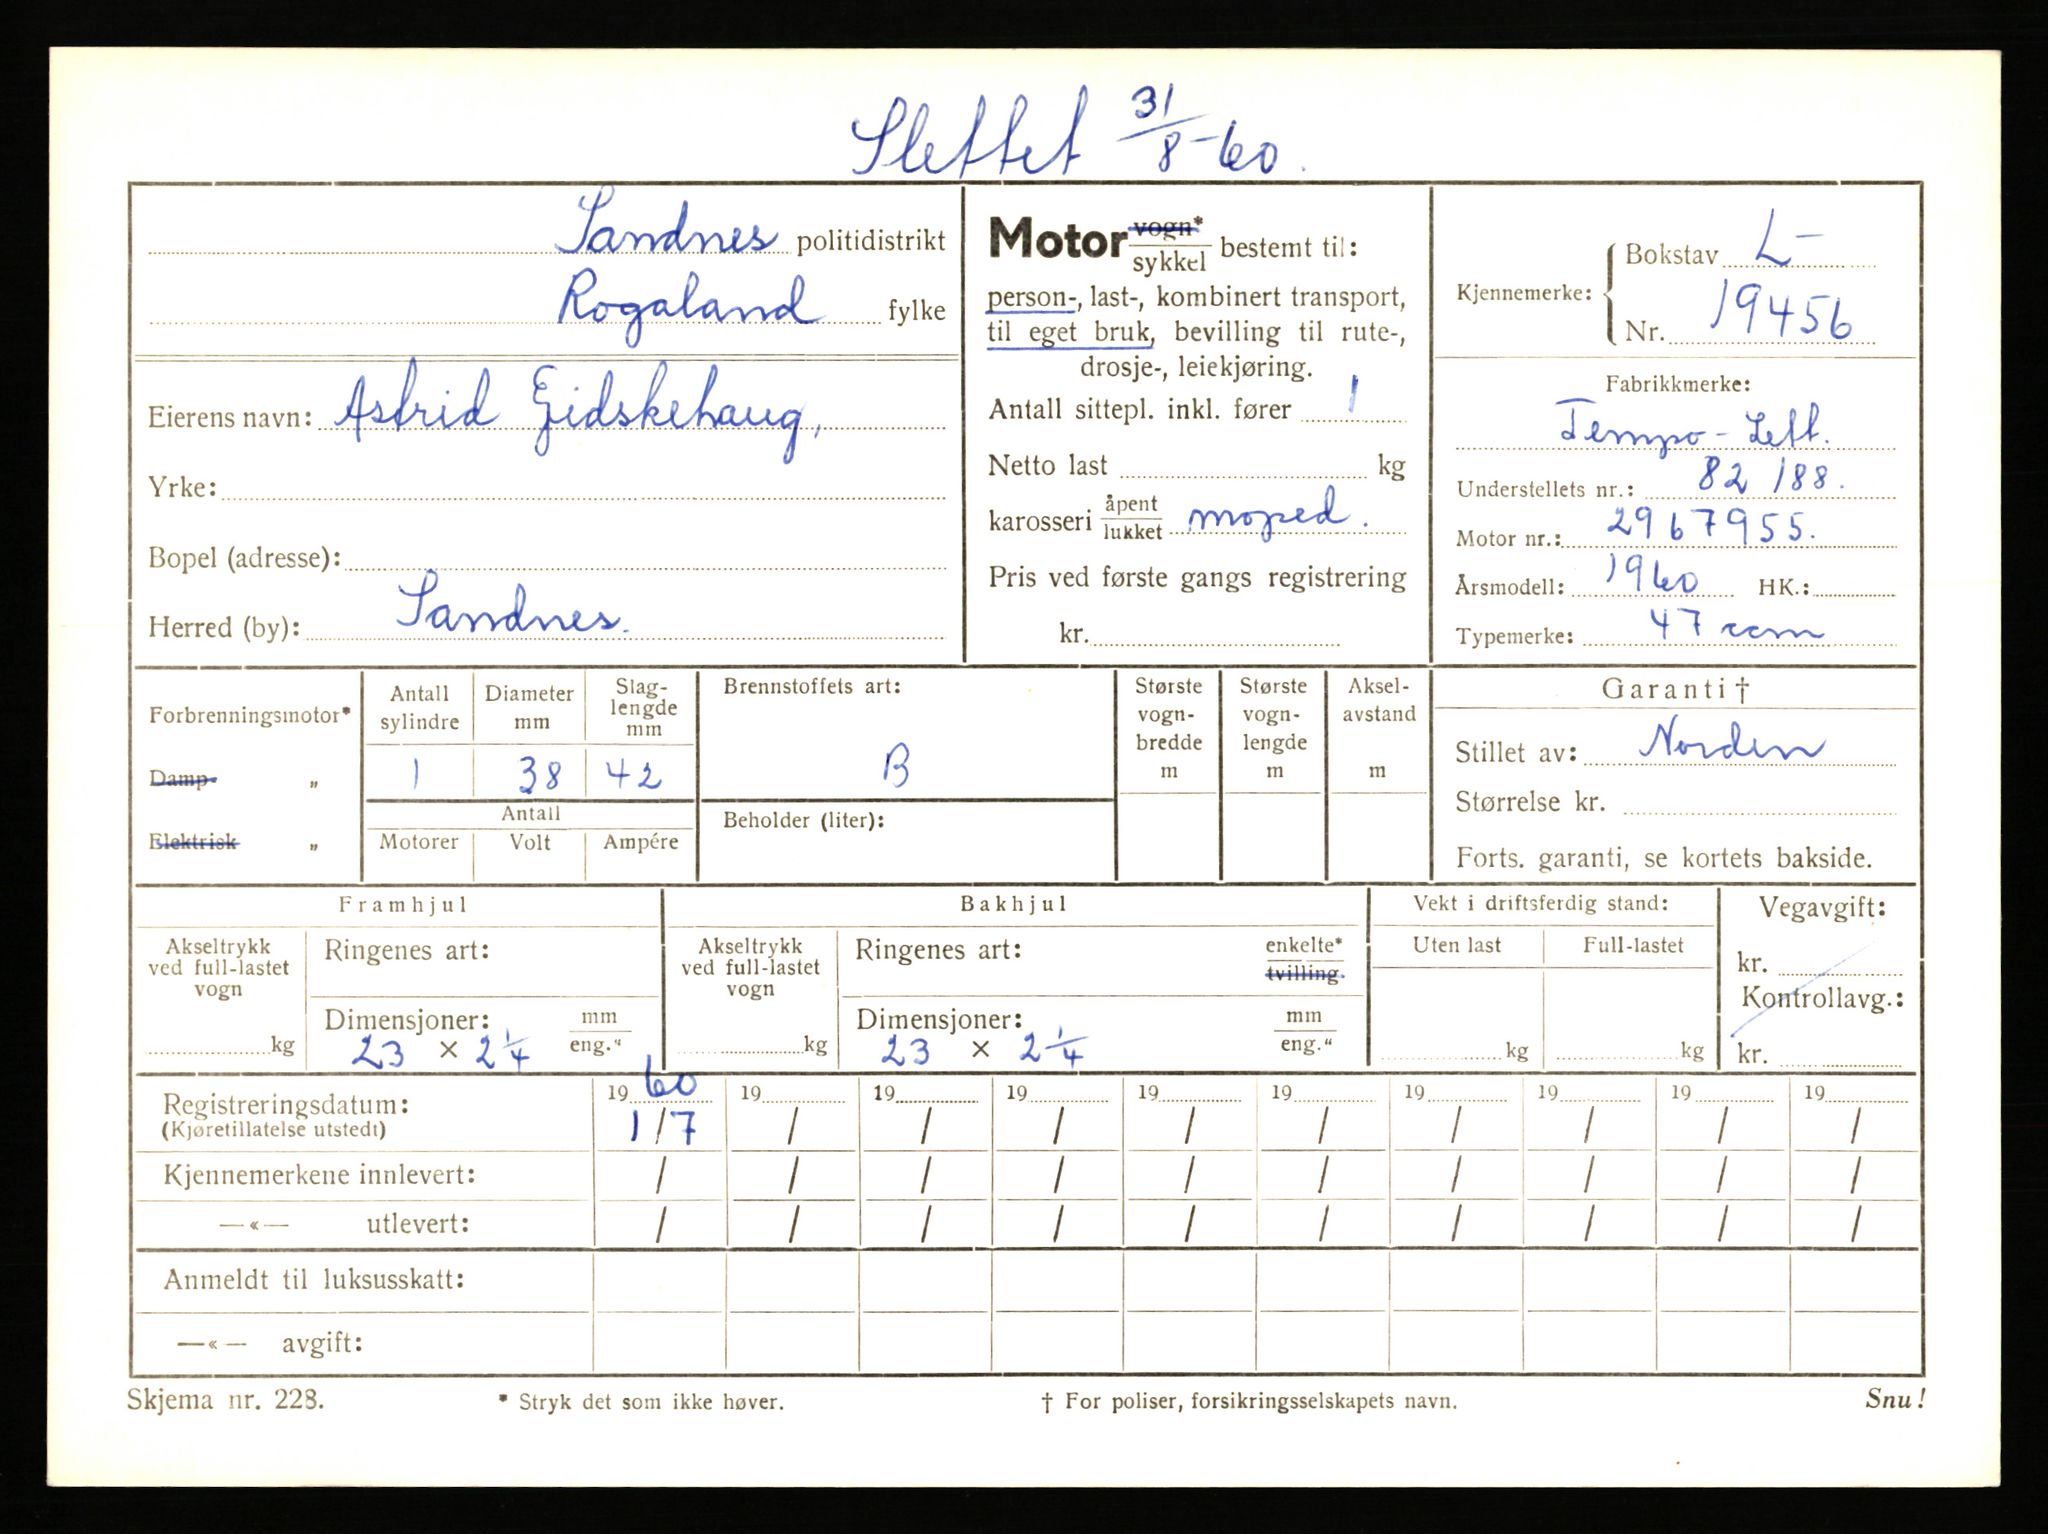 Slettet 31/8-60.
Sandnes politidistrikt
Rogaland fylke
Eierens navn: Astrid Gidskehaug,
Yrke:
Bopel (adresse):
Herred (by): Sandnes.
Motor vogn*/sykkel bestemt til:
person-, last-, kombinert transport,
til eget bruk, bevilling til rute-,
drosje-, leiekjøring.
Antall sittepl. inkl. fører 1
Netto last kg
karosseri åpent/lukket moped.
Pris ved første gangs registrering
kr.
Kjennemerke: Bokstav L-
Nr. 19456
Fabrikkmerke:
Tempo - Lett.
Understellets nr.: 82188.
Motor nr.: 2967955.
Årsmodell: 1960 HK.:
Typemerke: 47 ccm
Forbrenningsmotor*
Damp- „
Elektrisk „
Antall sylindre
1
Diameter mm
38
Slag-lengde mm
42
Antall
Motorer Volt Ampére
Brennstoffets art:
B
Beholder (liter):
Største vogn-bredde m
Største vogn-lengde m
Aksel-avstand m
Garanti †
Stillet av: Norden
Størrelse kr.
Forts. garanti, se kortets bakside.
Framhjul
Akseltrykk ved full-lastet vogn
kg
Ringenes art:
Dimensjoner: mm/eng."
23 × 2 1/4
Bakhjul
Akseltrykk ved full-lastet vogn
kg
Ringenes art: enkelte*/tvilling.
Dimensjoner: mm/eng."
23 × 2 1/4
Vekt i driftsferdig stand:
Uten last Full-lastet
kg kg
Vegavgift:
kr.
Kontrollavg.:
kr.
Registreringsdatum: 1960 19 19 19 19 19 19 19 19 19
(Kjøretillatelse utstedt) 1/7 / / / / / / / / /
Kjennemerkene innlevert: / / / / / / / / / /
—«— utlevert: / / / / / / / / / /
Anmeldt til luksusskatt:
—«— avgift:
Skjema nr. 228. * Stryk det som ikke høver. † For poliser, forsikringsselskapets navn. Snu!